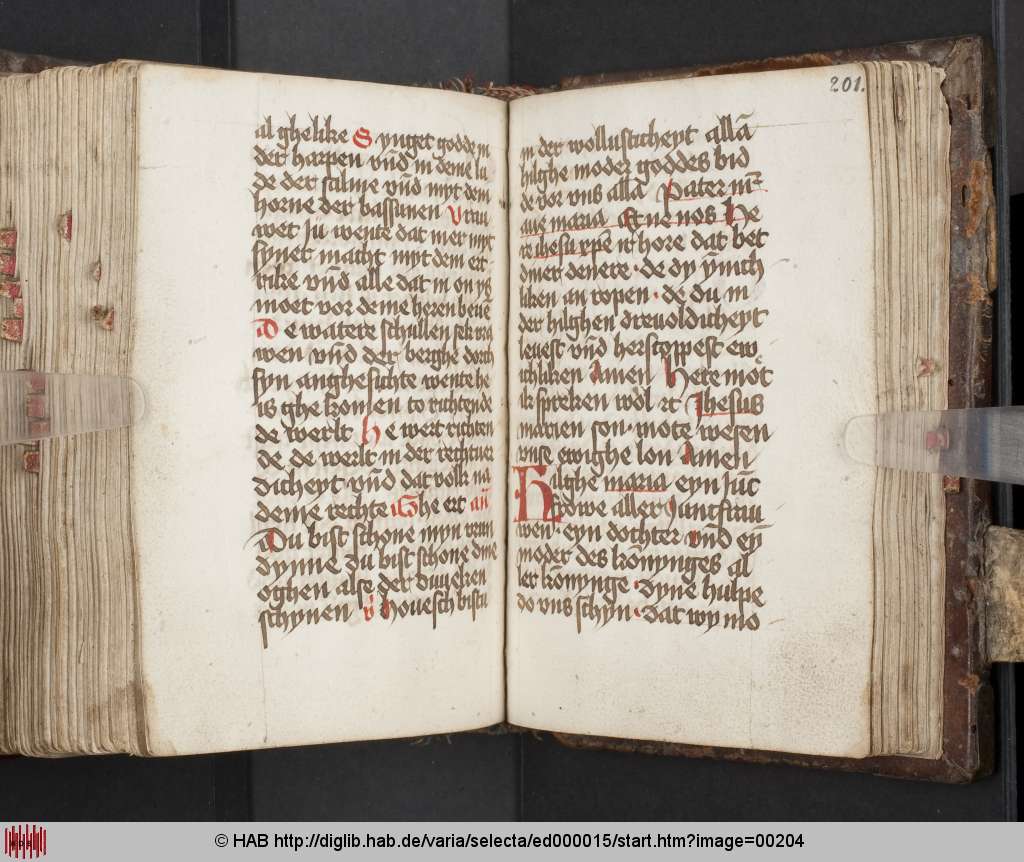 al ghelike Synget godde in
der harpen vnd in deme lu
de der salme vnd myt dem
horne der bassunen Vrau
wet ju wente dat mer myt
syner macht myt dem ert
rike vnd alle dat
moet vor deme heren
De watere schullen sek vra
wen vnd der berghe dorch
syn anghesichte wente he
is ghekomen to richtende
de werlt He wert richten
de de werlt in der rechtuer
dicheyt vnd dat volk na
deme rechte Ghe ert an
Du bist schone myn vrun
dynne Du bist schone dine
oghen alse der duueken
schynen v houesch bistu
201.
in der wollusticheyt allā
hilghe moder goddes bid
de vor vns allā Pater nr
aue maria Et ne nos He
re ihesu xpē vthore dat bet
diner denere de dy ynnich
liken an ropen de du in
der hilghen dreuoldicheyt
leuest vnd ewi
chliken Amen Here mot
ik spreken wol rt Jhesus
marien son mote wesen
vnse ewighe lon Amen
Hilghe maria eyn jūc
frowe aller juncfrau
wen eyn dochter vnd ey
moder des konynges al
ler konynge dyne hulpe
do vns schyn dat wy mo
© HAB http://diglib.hab.de/varia/selecta/ed000015/start.htm?image=00204